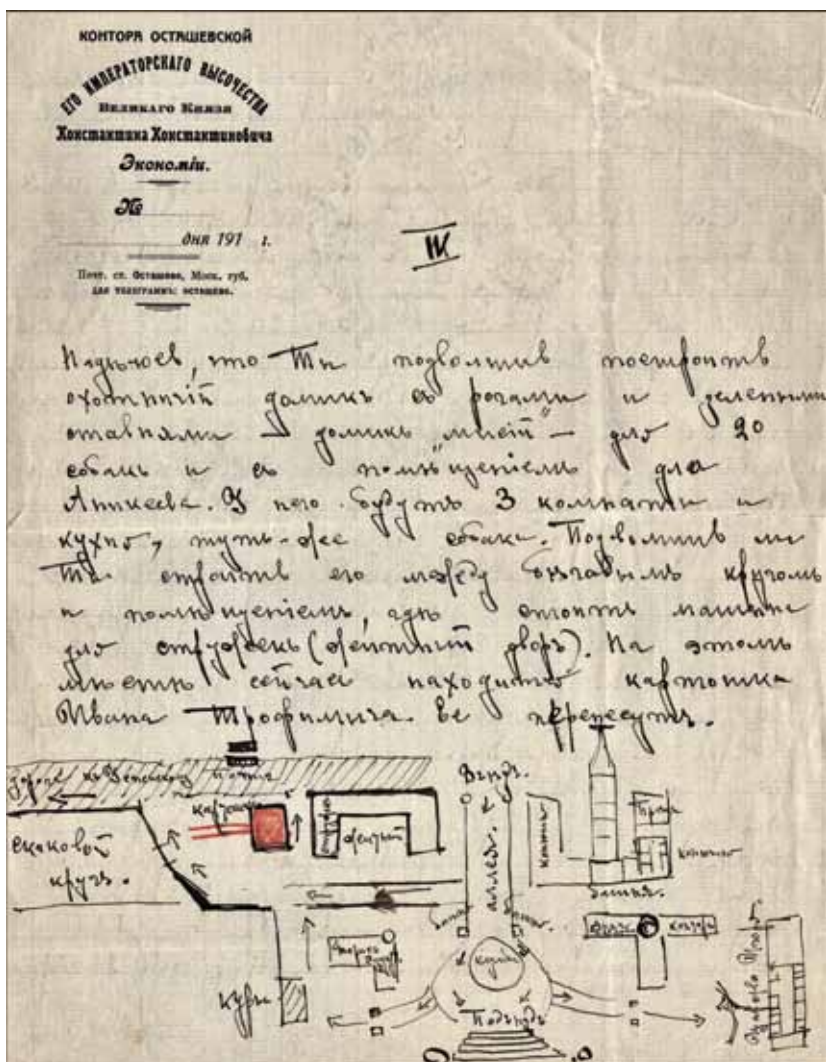 КОНТОРА ОСТАШЕВСКОЙ
ЕГО ИМПЕРАТОРСКАГО ВЫСОЧЕСТВА
ВЕЛИКАГО КНЯЗЯ
Константина Константиновича
Экономіи.
№
дня 191 г.
Почт. ст. Осташево, Моск. губ.
ДЛЯ ТЕЛЕГРАММЪ: ОСТАШЕВО.
IV
Надѣюсь, что Ты позволишь построить
охотничій домикъ съ рогами и зелеными
ставнями — домикъ „мысій“ — для 20
собакъ и съ помѣщеніемъ для
Аникеева. У него будутъ 3 комнаты и
кухня, тутъ-же собаки. Позволишь ли
Ты строить его между бѣговымъ кругомъ
и помѣщеніемъ, гдѣ стоитъ машина
для стружекъ (желтый дворъ). На этомъ
мѣстѣ сейчасъ находится картошка
Ивана Трофимыча. Ее перенесутъ.
дорога къ
Въѣздъ.
картошка
скаковой
кругъ.
желтый
аллея.
конюшня
башня.
контора
куры
Подъѣздъ